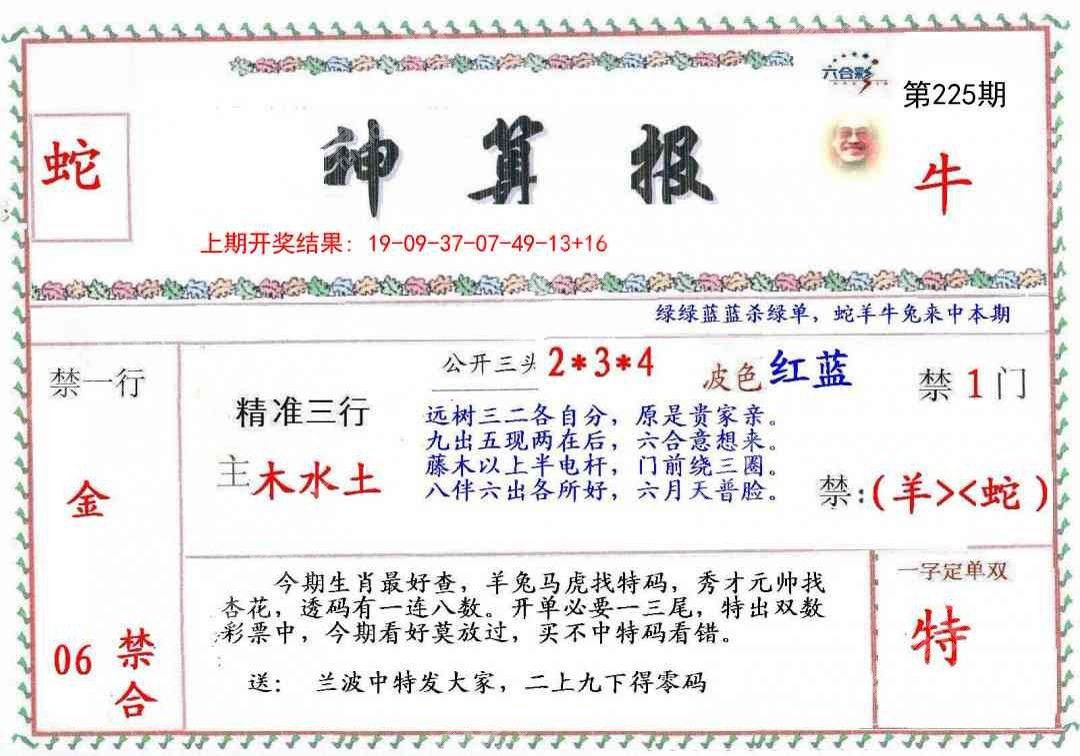 六合彩
第225期
蛇
神算报
牛
上期开奖结果：19-09-37-07-49-13+16
绿绿蓝蓝杀绿单，蛇羊牛兔来中本期
禁一行
金
06
禁合
精准三行
主木水土
公开三头 2*3*4
波色 红蓝
远树三二各自分，原是贵家亲。
九出五现两在后，六合意想来。
藤木以上半电杆，门前绕三圈。
八伴六出各所好，六月天普脸。
禁1门
禁:(羊><蛇)
今期生肖最好查，羊兔马虎找特码，秀才元帅找
杏花，透码有一连八数。开单必要一三尾，特出双数
彩票中，今期看好莫放过，买不中特码看错。
送： 兰波中特发大家，二上九下得零码
一字定单双
特